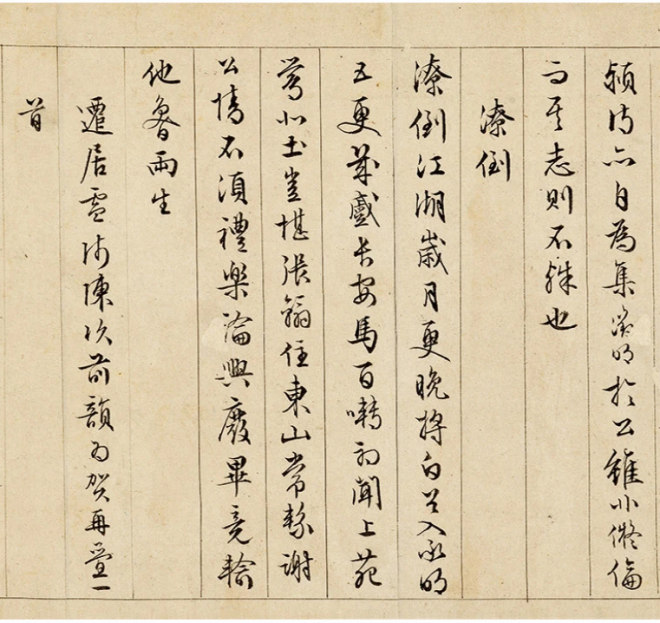 六日為集淵明於公雖非儗倫
而其志則不殊也
潦倒
潦倒江湖歲月更晚將白首入承明
五更長安馬百囀初聞上苑
鶯北土豈堪張翰住東山常繫謝
公情不須禮樂論興廢畢竟輸
他魯兩生
遷居盧師陳次前韻為賀再疊一
首